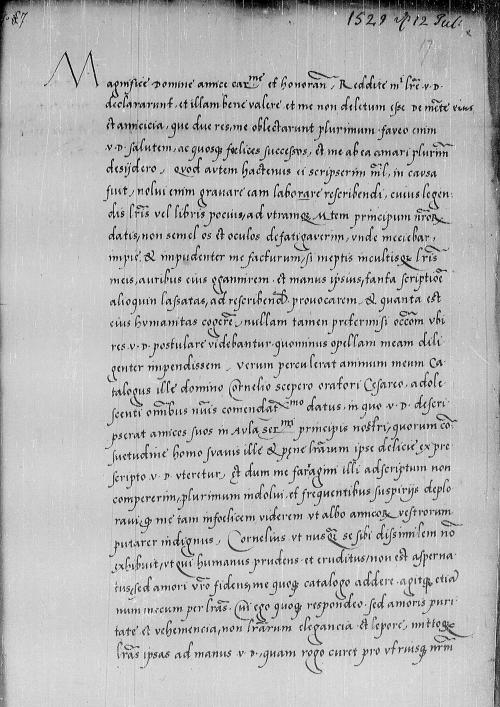 1529 12 Jul.
Magnifice Domine amice car^me et honoran̄. Reddite mͥ lr̄e v. D.
declararunt, et illam bene valere et me non deletum esse De mēte eius
et amicicia, que due res, me oblectarunt plurimum. faveo enim
v. D. salutem, ac quosq̨ fœlices successos, et me ab ea amari plurimū
desydero. Quod autem hactenus ei scripserim nīl, in causa
fuit, nolui enim gravare eam laborare rescribendi, cuius legen-
dis lr̄is vel libris pocius, ad utramq̨ M.tem principum nr̄orū
datis, non semel os et oculos defatigaverim, unde
impie & impudenter me facturum, si ineptis incultisq̨ lr̄is
meis, auribus eius ogannirem. et manus ipsius, tanta scriptiōe
alioquin lassatas, ad rescribend̄ provocarem, & quanta est
eius humanitas cogerē, nullam tamen pretermisi occāom ubi
res v. D. postulare videbantur. quominus opellam meam dili
genter impendissem. verum perculerat animum meum Ca
talogus ille domino Cornelio scepero oratori Cesareo, adole
scenti om̄ibus n̄uis comendat^mo datus, in quo v. D. descri
pserat amicos suos in Aula ser^mi principis nostri, quorum cō
suetudine homo suavis ille & pene lr̄arum ipse delicie, ex pre
scripto v. D. uteretur, et dum me faragini illi adscriptum non
compererim, plurimum indolui, et frequentibus suspirijs deplo
ravi, q̨ me tam infoelicem viderem ut albo amicor̨ vestrorum
putarer indignus. Cornelius ut nusq̨ se sibi dissimilem nō
exhibuit, ut qui humanus prudens et eruditus, non est asperna
tus, sed amori vr̄o fidens, me quoq̨ catalogo addere. agitq̨ etiā
num mecum per lr̄as. Cui ego quoq̨ respondeo. sed amoris puri
tate et vehemencia, non lr̄arum elegancia et lepore, mittoq̨
lr̄as ipsas ad manus v. D., quam rogo curet pro utriusq̨ nr̄m